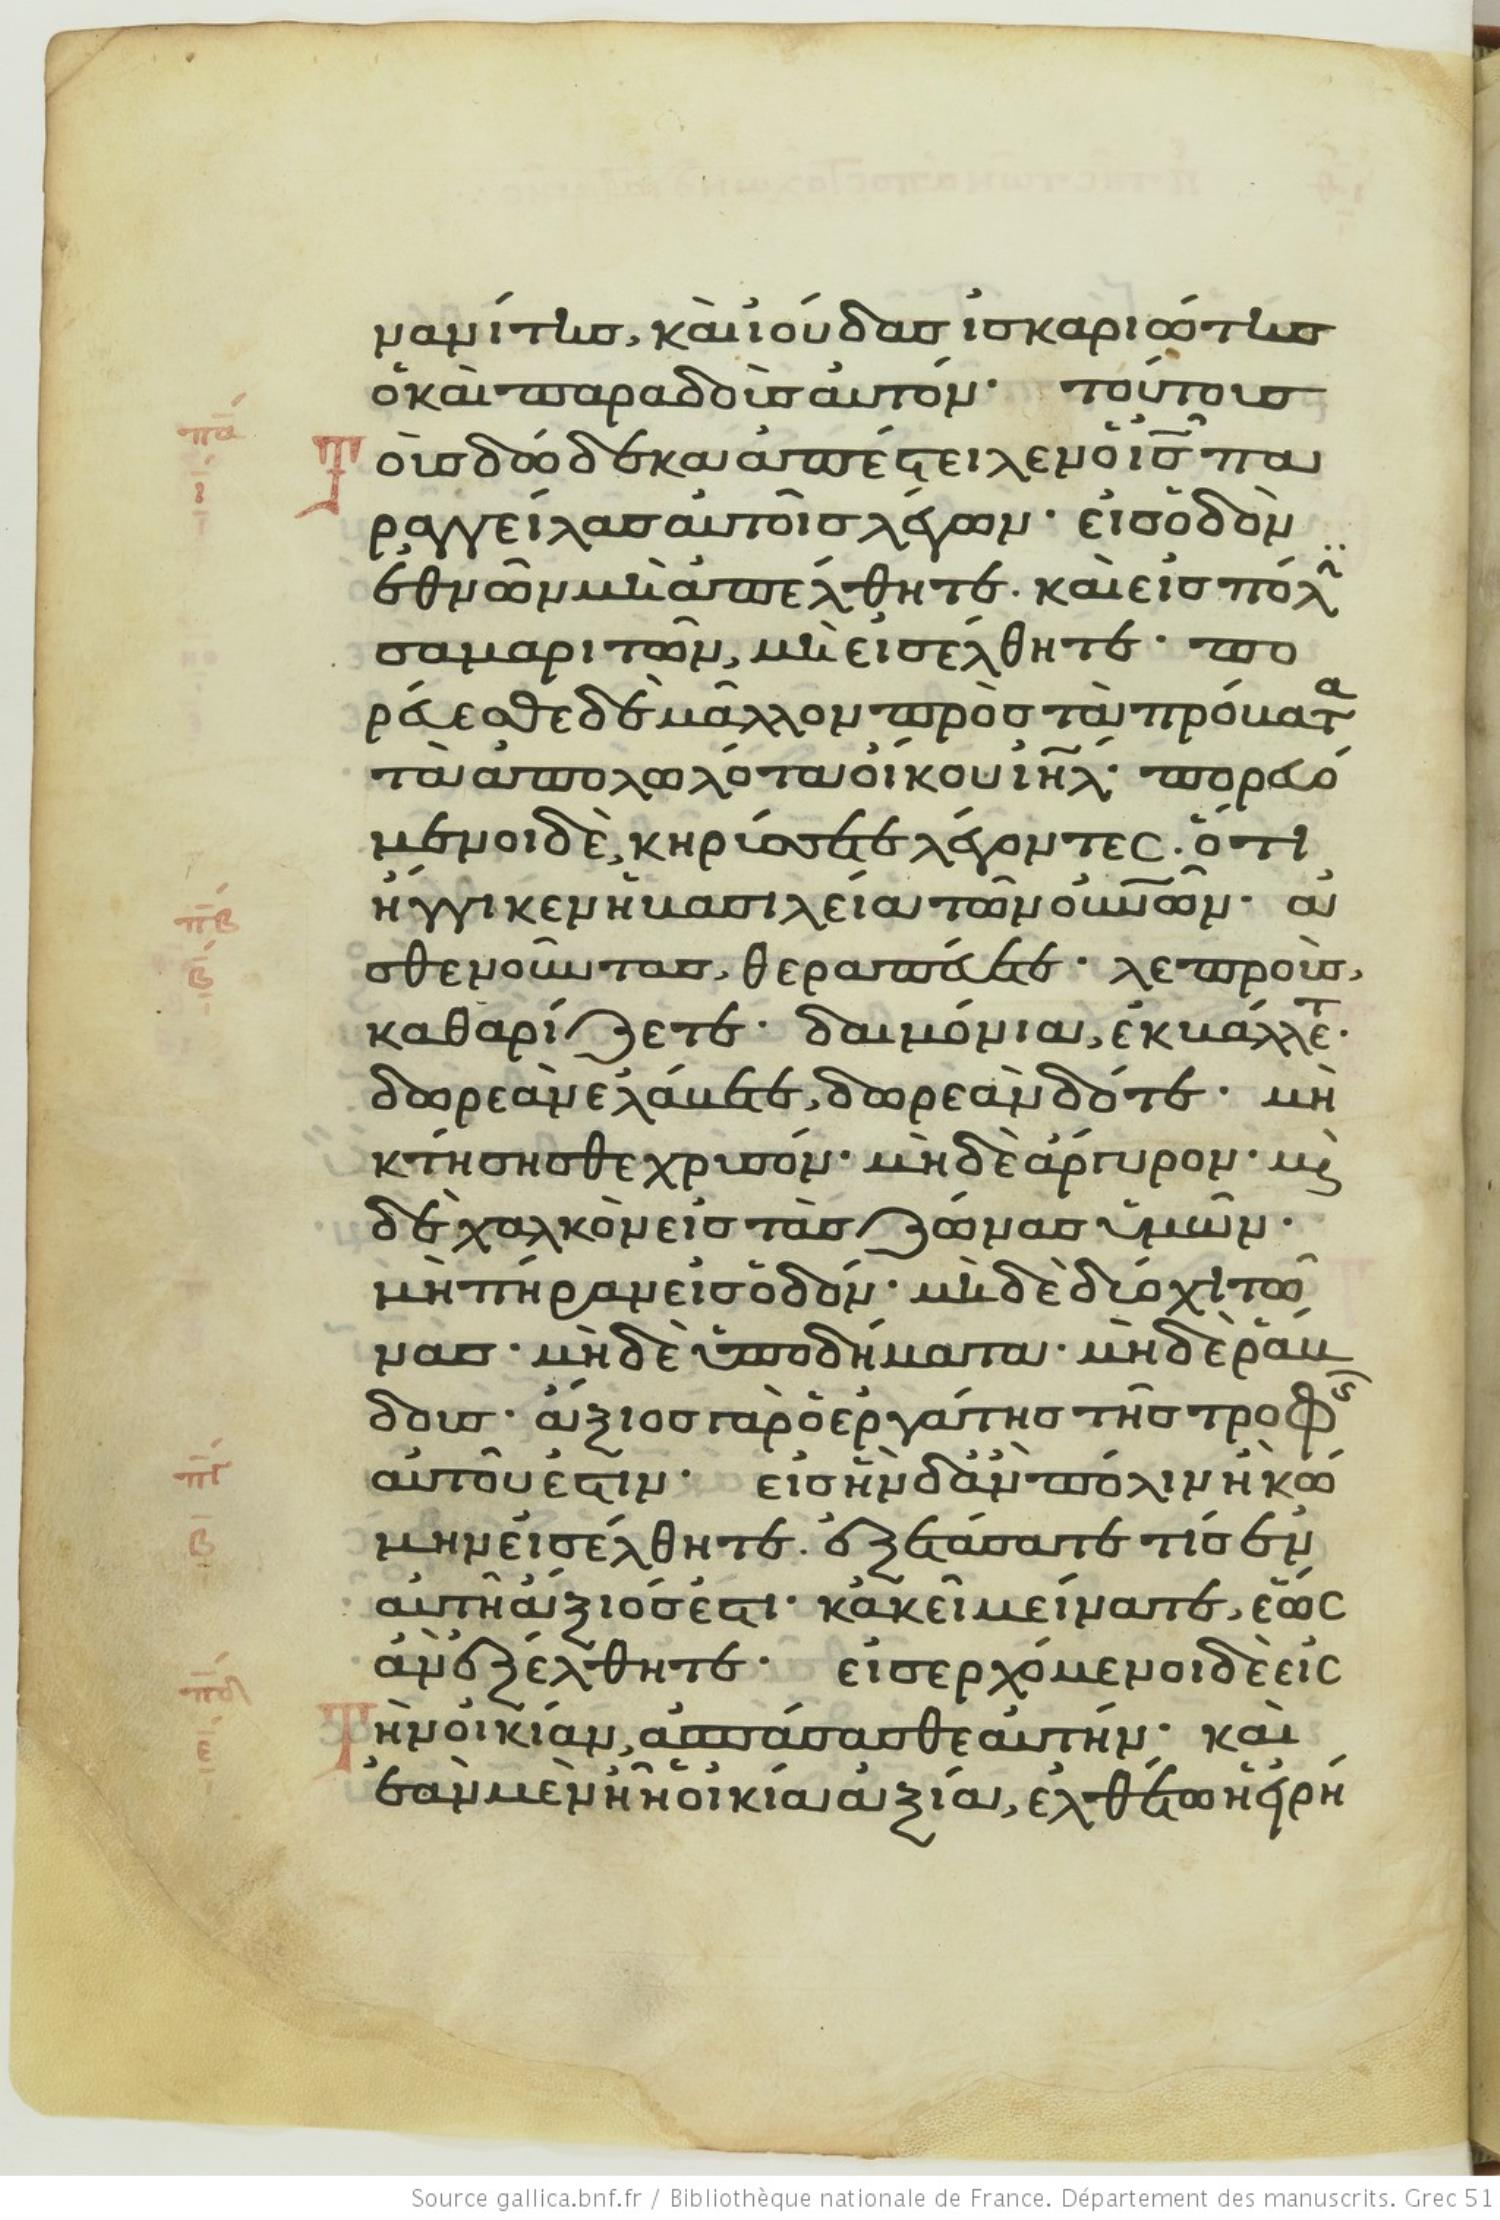 νανίτης, καὶ ἰούδας ἰσκαριώτης
ὁ καὶ παραδοὺς αὐτόν· τούτους
πα
ι
Τοὺς δώδεκα ἀπέστειλεν ὁ ις̅ πα
ραγγείλας αὐτοῖς λέγων· εἰς ὁδὸν
ἐθνῶν μὴ ἀπέλθητε. καὶ εἰς πόλ
σαμαριτῶν, μὴ εἰσέλθητε· πο
ρεύεσθε δὲ μᾶλλον πρὸς τὰ πρόβατα
τὰ ἀπολωλότα οἴκου ιη̅λ· πορευό
μενοι δὲ, κηρύσσετε λέγοντες. ὅτι
πβ
β
ἤγγικεν ἡ βασιλεία τῶν οὐν̅ῶν· ἀ
σθενοῦντας, θεραπεύετε· λεπροὺς,
καθαρίζετε· δαιμόνια, ἐκβάλλετ·
δωρεὰν ἐλάβετε, δωρεὰν δότε· μὴ
κτήσησθε χρυσόν· μὴδὲ ἄργυρον· μὴ
δὲ χαλκὸν εἰς τὰς ζώνας ὑμῶν·
μὴ πήραν εἰς ὁδόν· μὴδὲ δύο χιτῶ
νας· μὴδὲ ὑποδήματα· μὴδὲ ῥάβ
δους· ἄξιος γὰρ ὁ ἐργάτης τῆς τροφῆς
πγ
β
αὐτοῦ ἐστιν· εἰς ἣν δ᾽ἂν πόλιν ἢ κώ
μην εἰσέλθητε. ἐξετάσατε τίς ἐν
αὐτῆ ἄξιός ἐστι· κἀκεῖ μείνατε, ἕως
ἂν ἐξέλθητε· εἰσερχόμενοι δὲ εἰς
πδ
ε
Τὴν οἰκίαν, ἀσπάσασθε αὐτήν· καὶ
ἐὰν μὲν ἦ ἡ οἰκία ἀξία, ἐλθέτω ἡ εἰρή
Source gallica.bnf.fr / Bibliothèque nationale de France. Département des manuscrits. Grec 51